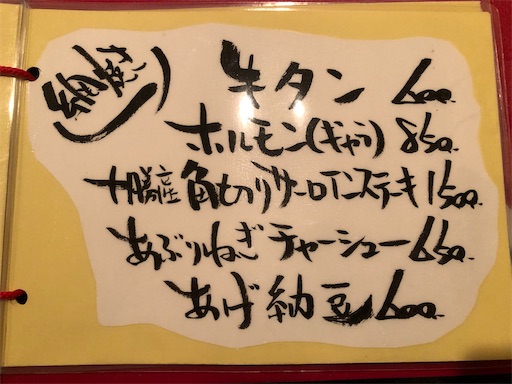 牛タン 600.
ホルモン(ギャラ) 850.
十勝産角切りサーロインステーキ 1500.
あぶりねぎチャーシュー 650.
あげ納豆 600.